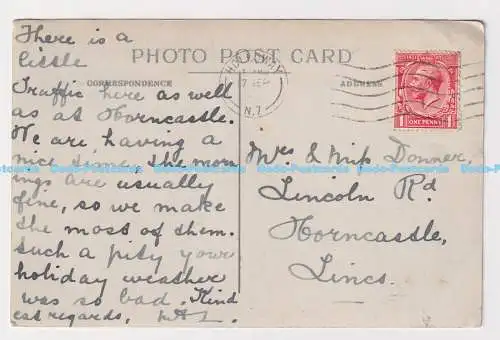 There is a
little
PHOTO POST CARD
CORRESPONDENCE
Traffic here as well
as at Horncastle.
We are having a
nice time, the morn
ings are usually
fine, so we make
the most of them.
Such a pity your
holiday weather
was so bad. Kind
est regards,
ADDRESS
HOLLOWAY
7 SEP
N.7
1 ONE PENNY 1
Mrs & Miss Donner,
Lincoln Rd
Horncastle,
Lincs.